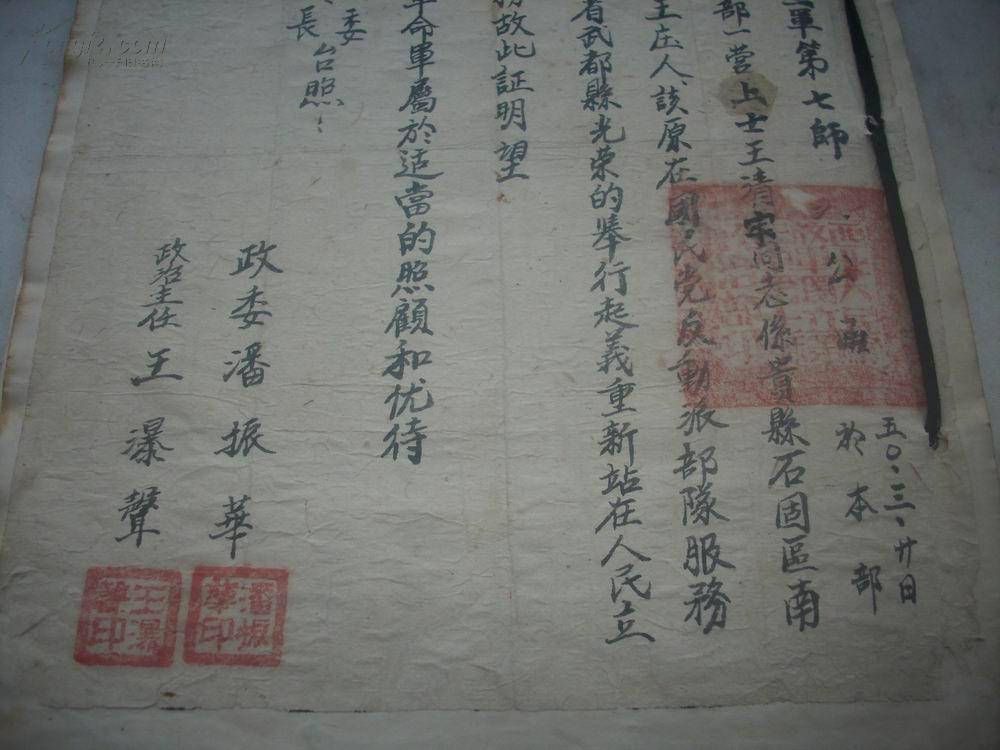 軍第七師
公函
五〇、三、廿日
於本部
部一营上士王清宗同志係貴縣石固區南
王庄人、該原在國民党反動派部隊服務
者武都縣光荣的舉行起義重新站在人民立
故此証明望
革命軍屬於适當的照顧和优待
委
長台照
政委潘振華
政治主任王瀑聲
潘振華印
王瀑聲印